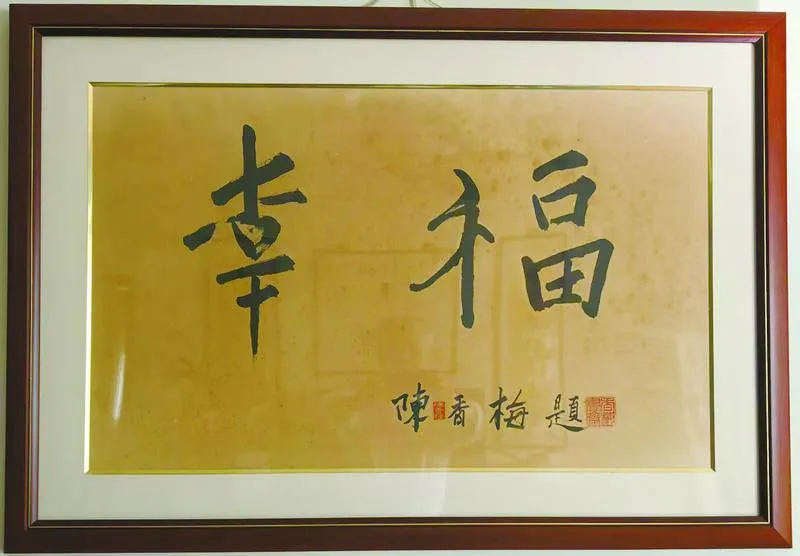 幸福
陳香梅題